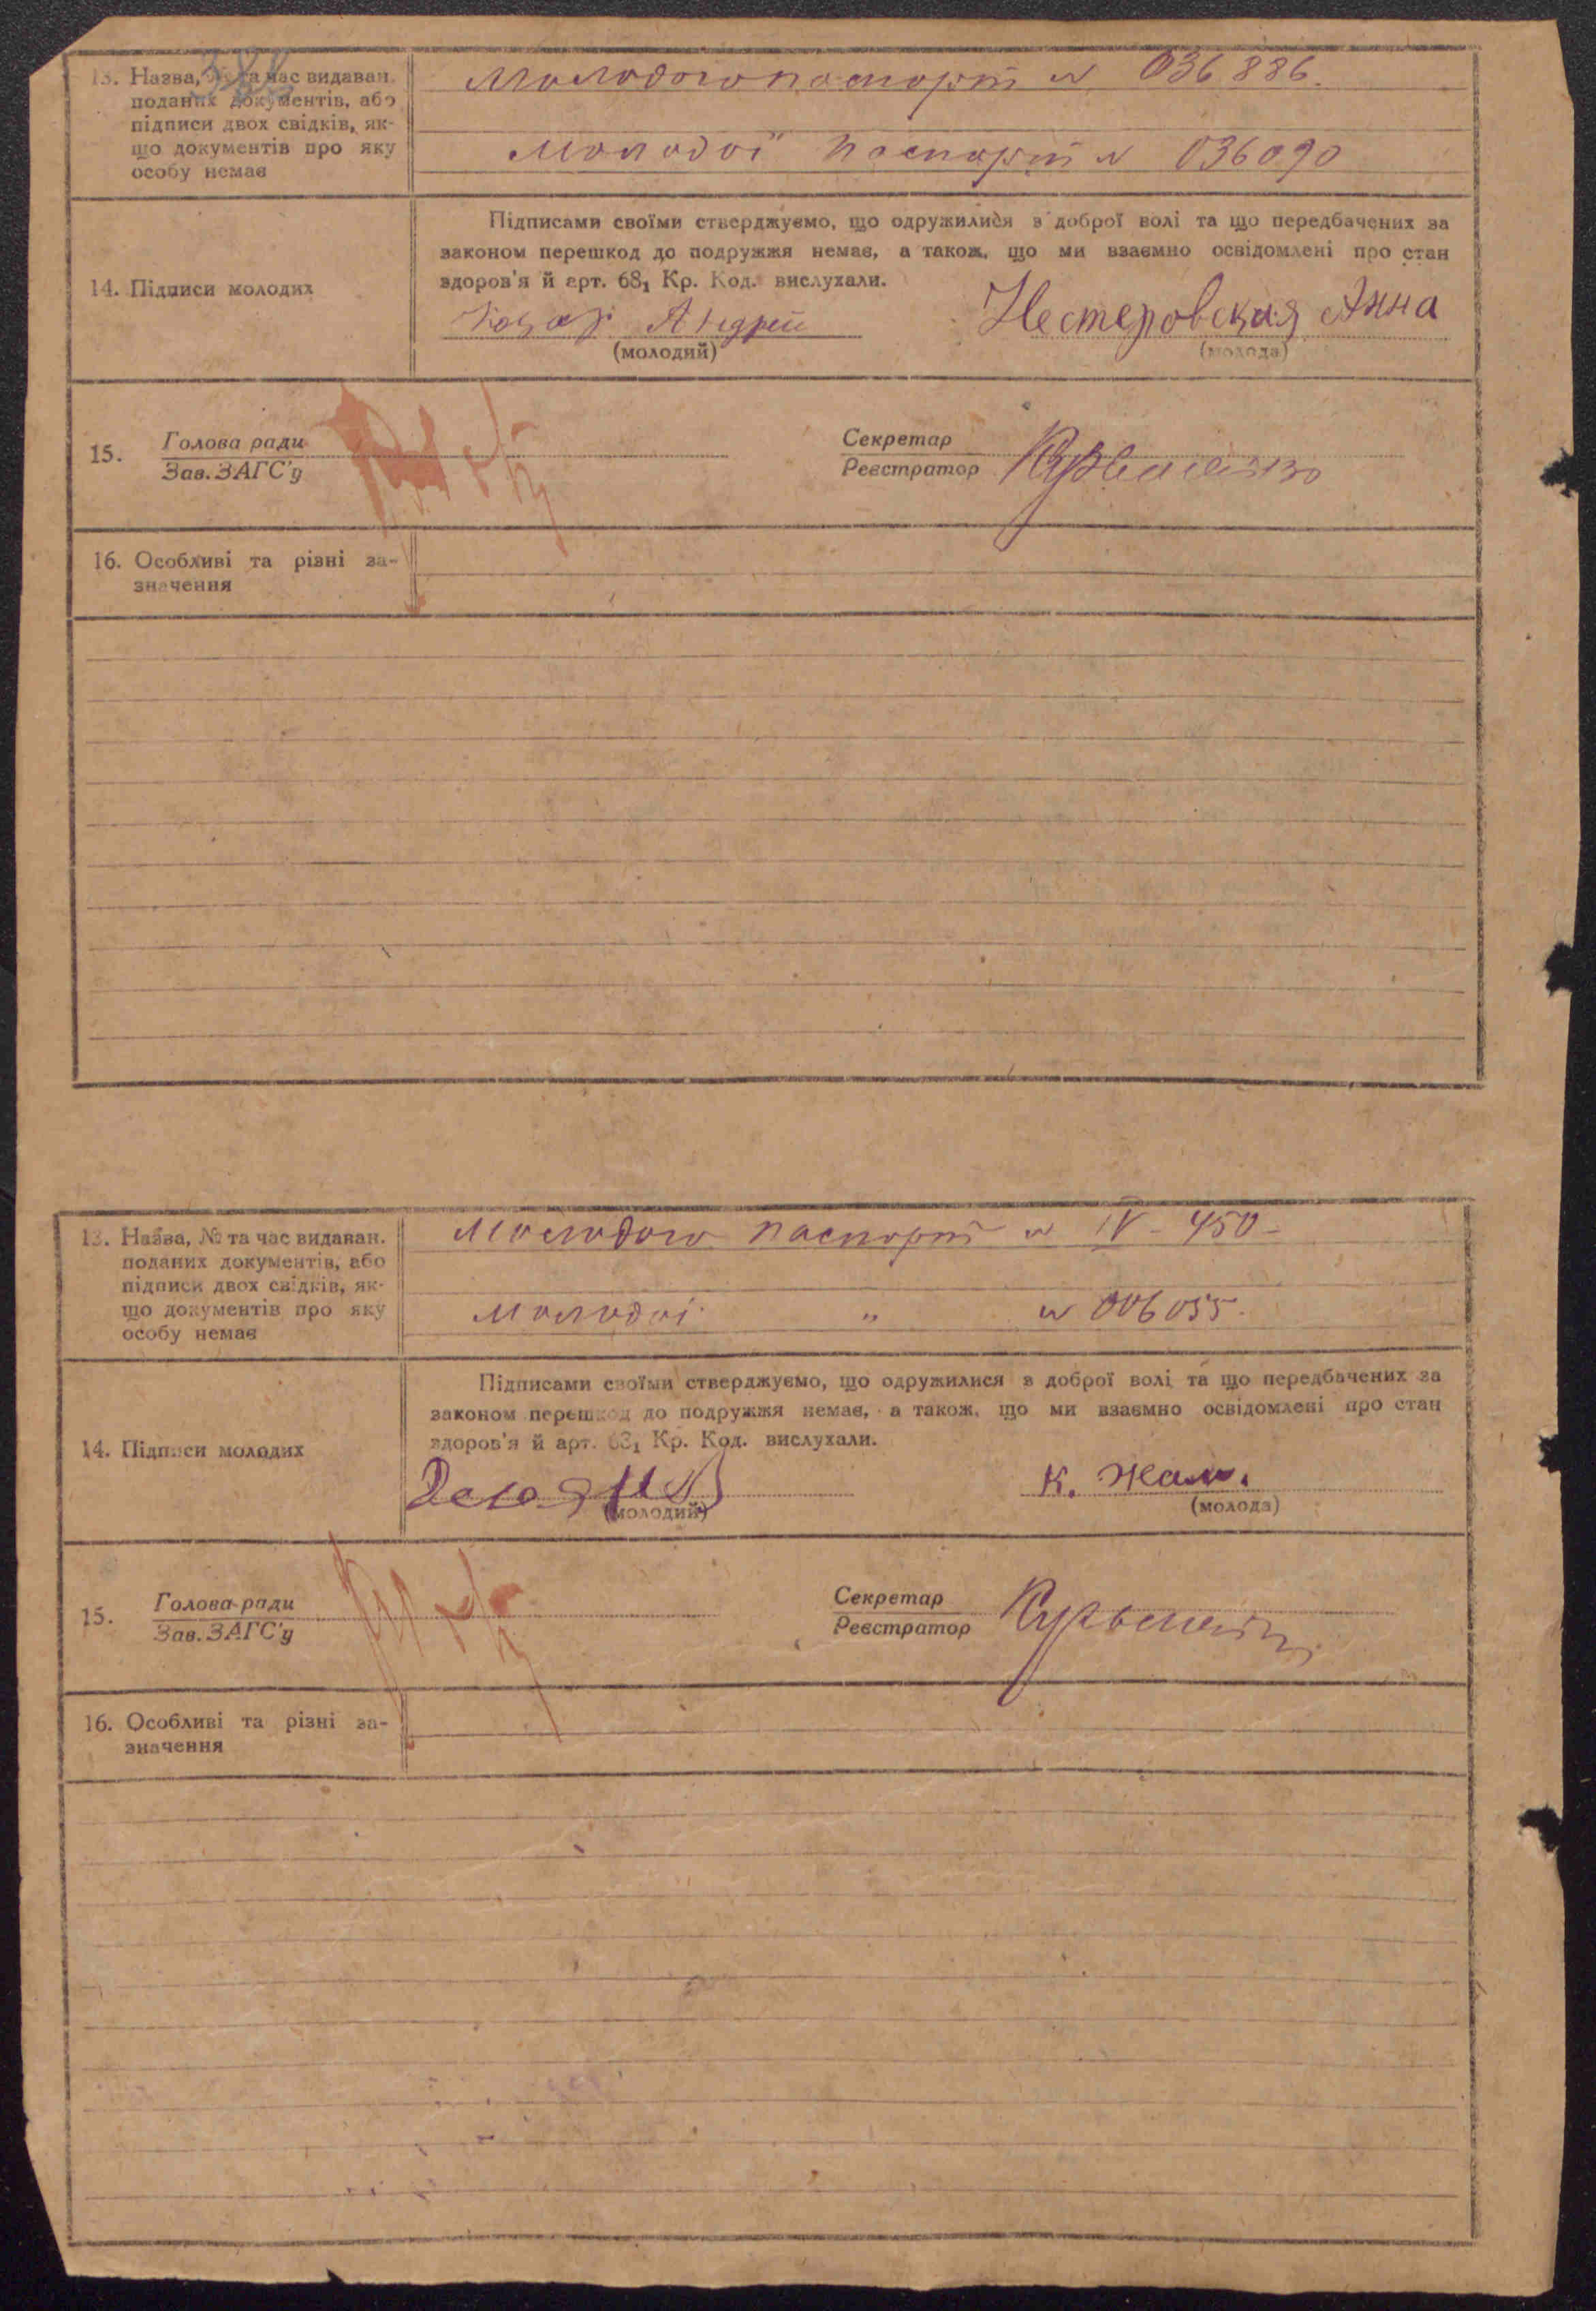 13. Назва, № та час видаван.
поданих документів, або
підписи двох свідків, як-
що документів про яку
особу немає
Молодого паспорт № 036886.
Молодої паспорт № 036090
14. Підписи молодих
Підписами своїми стверджуємо, що одружилися з доброї волі та що передбачених за
законом перешкод до подружжя немає, а також, що ми взаємно освідомлені про стан
здоров'я й арт. 68₁ Кр. Код. вислухали.
Андрей
(молодий)
Нестеровская Анна
(молода)
15. Голова ради
Зав. ЗАГС'у
Секретар
Реєстратор
16. Особливі та різні за-
значення
13. Назва, № та час видаван.
поданих документів, або
підписи двох свідків, як-
що документів про яку
особу немає
Молодого паспорт № IV - 450 -
Молодої " № 006055.
14. Підписи молодих
Підписами своїми стверджуємо, що одружилися з доброї волі та що передбачених за
законом перешкод до подружжя немає, а також, що ми взаємно освідомлені про стан
здоров'я й арт. 68₁ Кр. Код. вислухали.
(молодий)
К.
(молода)
15. Голова ради
Зав. ЗАГС'у
Секретар
Реєстратор
16. Особливі та різні за-
значення